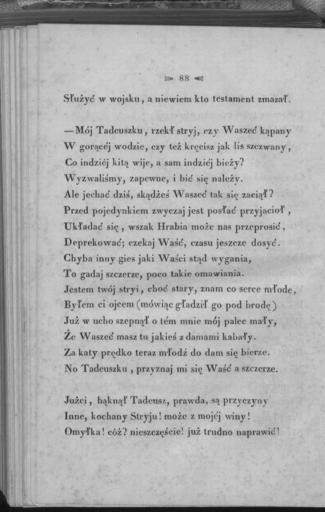 88
Służyć w wojsku, a niewiem kto testament zmazał.
— Mój Tadeuszku, rzekł stryj, czy Waszeć kąpany
W gorącéj wodzie, czy też kręcisz jak lis szczwany,
Co indziéj kitą wije, a sam indziéj bieży?
Wyzwaliśmy, zapewne, i bić się należy.
Ale jechać dziś, skądżeś Waszeć tak się zaciął?
Przed pojedynkiem zwyczaj jest posłać przyjacioł,
Układać się, wszak Hrabia może nas przeprosić,
Deprekować; czekaj Waść, czasu jeszcze dosyć.
Chyba inny gies jaki Waści stąd wygania,
To gadaj szczerze, poco takie omawiania.
Jestem twój stryj, choć stary, znam co serce młode,
Byłem ci ojcem (mówiąc gładził go pod brodę)
Już w ucho szepnął o tém mnie mój palec mały,
Że Waszeć masz tu jakieś z damami kabały.
Za katy prędko teraz młodź do dam się bierze.
No Tadeuszku, przyznaj mi się Waść a szczerze.
Jużci, bąknął Tadeusz, prawda, są przyczyny
Inne, kochany Stryju! może z mojéj winy!
Omyłka! cóż? nieszczęście! już trudno naprawić!